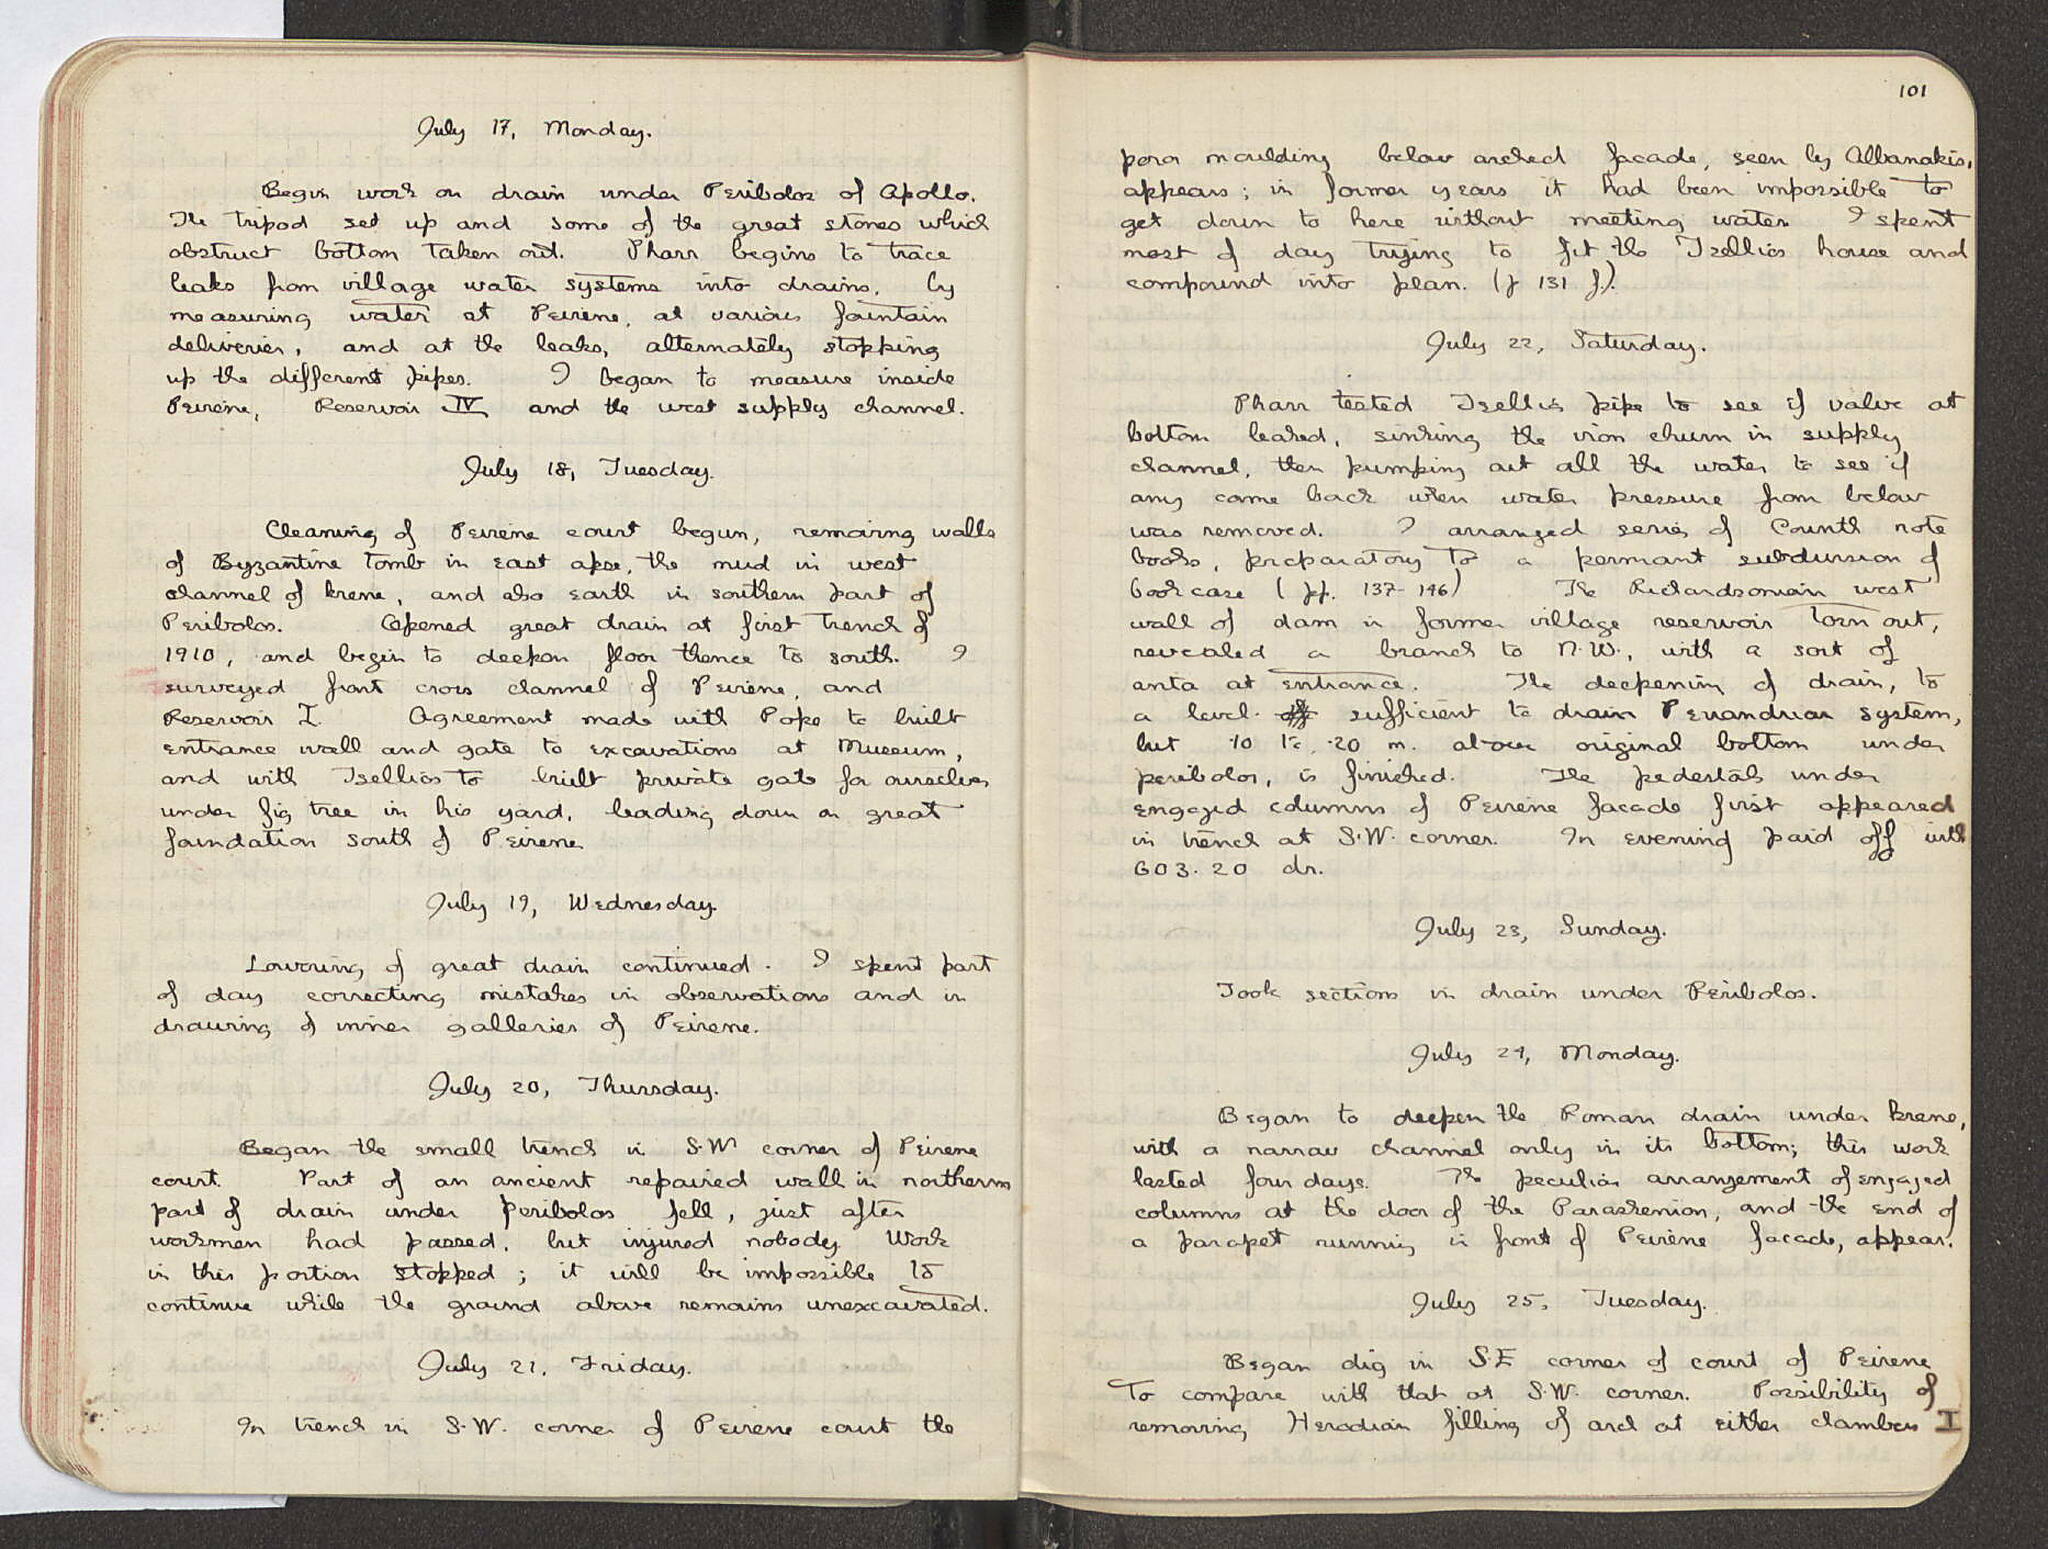 July 17, Monday.
Begin work on drain under Peribolos of Apollo.
The tripod set up and some of the great stones which
obstruct bottom taken out. Pharr begins to trace
leaks from village water systems into drains, by
measuring water at Peirene, at various fountain
deliveries, and at the leaks, alternately stopping
up the different pipes. I began to measure inside
Peirene, Reservoir IV and the west supply channel.
July 18, Tuesday.
Cleaning of Peirene court begun, removing walls
of Byzantine tomb in east apse, the mud in west
channel of krene, and also earth in southern part of
Peribolos. Opened great drain at first trench of
1910, and begin to deepen floor thence to south. I
surveyed front cross channel of Peirene, and
Reservoir I. Agreement made with Pope to built
entrance wall and gate to excavations at Museum,
and with Tsellios to built private gate for ourselves
under fig tree in his yard, leading down on great
foundation south of Peirene
July 19, Wednesday.
Lowering of great drain continued. I spent part
of day correcting mistakes in observations and in
drawing of inner galleries of Peirene.
July 20, Thursday.
Began the small trench in S.W corner of Peirene
court. Part of an ancient repaired wall in northern
part of drain under Peribolos fell, just after
workmen had passed, but injured nobody. Work
in this portion stopped; it will be impossible to
continue while the ground above remains unexcavated.
July 21, Friday.
In trench in S.W. corner of Peirene court the
101
poros moulding below arched facade, seen by Albanakis,
appears; in former years it had been impossible to
get down to here without meeting water. I spent
most of day trying to fit the Tsellios house and
compound into plan. (p 131 f.).
July 22, Saturday.
Pharr tested Tsellios pipe to see if valve at
bottom leaked, sinking the iron churn in supply
channel, then pumping out all the water to see if
any came back when water pressure from below
was removed. I arranged series of Corinth note
books, preparatory to a permant subdivision of
bookcase (pp. 137-146) The Richardsonian west
wall of dam in former village reservoir torn out,
revealed a branch to N.W., with a sort of
anta at entrance. The deepening of drain, to
a level sufficient to drain Periandrian system,
but .10 to .20 m. above original bottom under
peribolos, is finished. The pedestals under
engaged columns of Peirene facade first appeared
in trench at S.W. corner. In evening paid off with
603.20 dr.
July 23, Sunday.
Took sections in drain under Peribolos.
July 24, Monday.
Began to deepen the Roman drain under krene,
with a narrow channel only in its bottom; this work
lasted four days. The peculiar arrangement of engaged
columns at the door of the Paraskenion, and the end of
a parapet running in front of Peirene facade, appear.
July 25, Tuesday.
Began dig in S.E corner of court of Peirene
To compare with that at S.W. corner. Possibility of
removing Herodian filling of arch at either chambers I